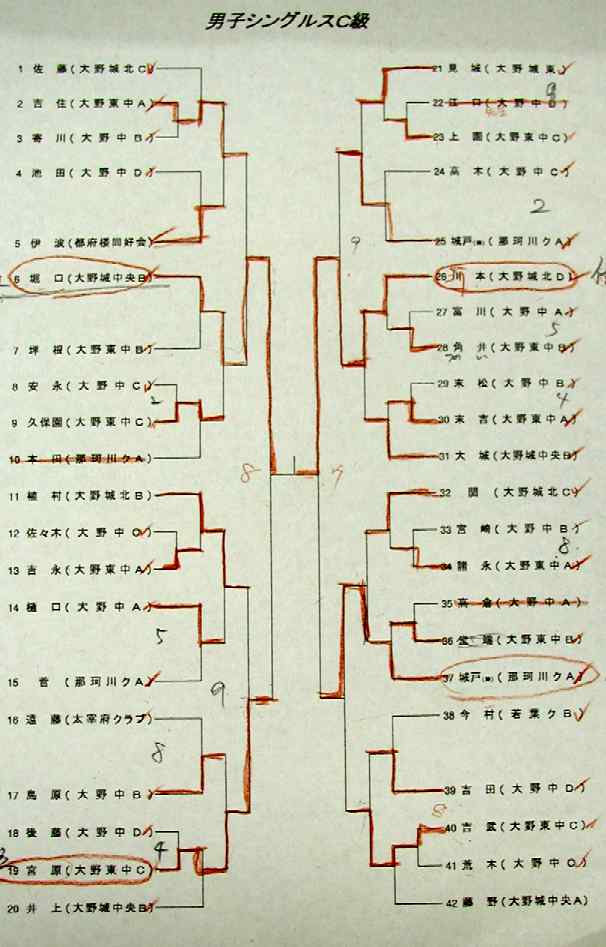 男子シングルスC級
1 佐 藤 (大野城北C)
2 吉 住 (大野東中A)
3 寄 川 (大野中B)
4 池 田 (大野中D)
5 伊 波 (都府楼同好会)
6 堀 口 (大野城中央B)
7 坪 根 (大野東中B)
8 安 永 (大野中C)
2
9 久保園 (大野東中C)
10 本 田 (那珂川クA)
8
11 植 村 (大野城北B)
12 佐々木 (大野中C)
13 吉 永 (大野東中A)
14 樋 口 (大野中A)
5
15 菅 (那珂川クA)
9
16 遠 藤 (太宰府クラブ)
8
17 鳥 原 (大野中B)
18 後 藤 (大野中D)
4
19 宮 原 (大野東中C)
20 井 上 (大野城中央B)
21 見 城 (大野城東)
22 江 口 (大野中B)
23 上 園 (大野東中C)
24 高 木 (大野中C)
2
9
25 城戸 (那珂川クA)
26 川 本 (大野城北D)
27 富 川 (大野中A)
5
28 角 井 (大野東中B)
29 末 松 (大野中B)
4
30 末 吉 (大野東中A)
31 大 城 (大野城中央B)
32 関 (大野城北C)
33 宮 崎 (大野中B)
8
34 諸 永 (大野東中A)
35 高 倉 (大野中A)
36 (大野東中B)
37 城戸 (那珂川クA)
38 今 村 (若葉クB)
39 吉 田 (大野中D)
8
40 吉 武 (大野東中C)
41 荒 木 (大野中C)
42 藤 野 (大野城中央A)